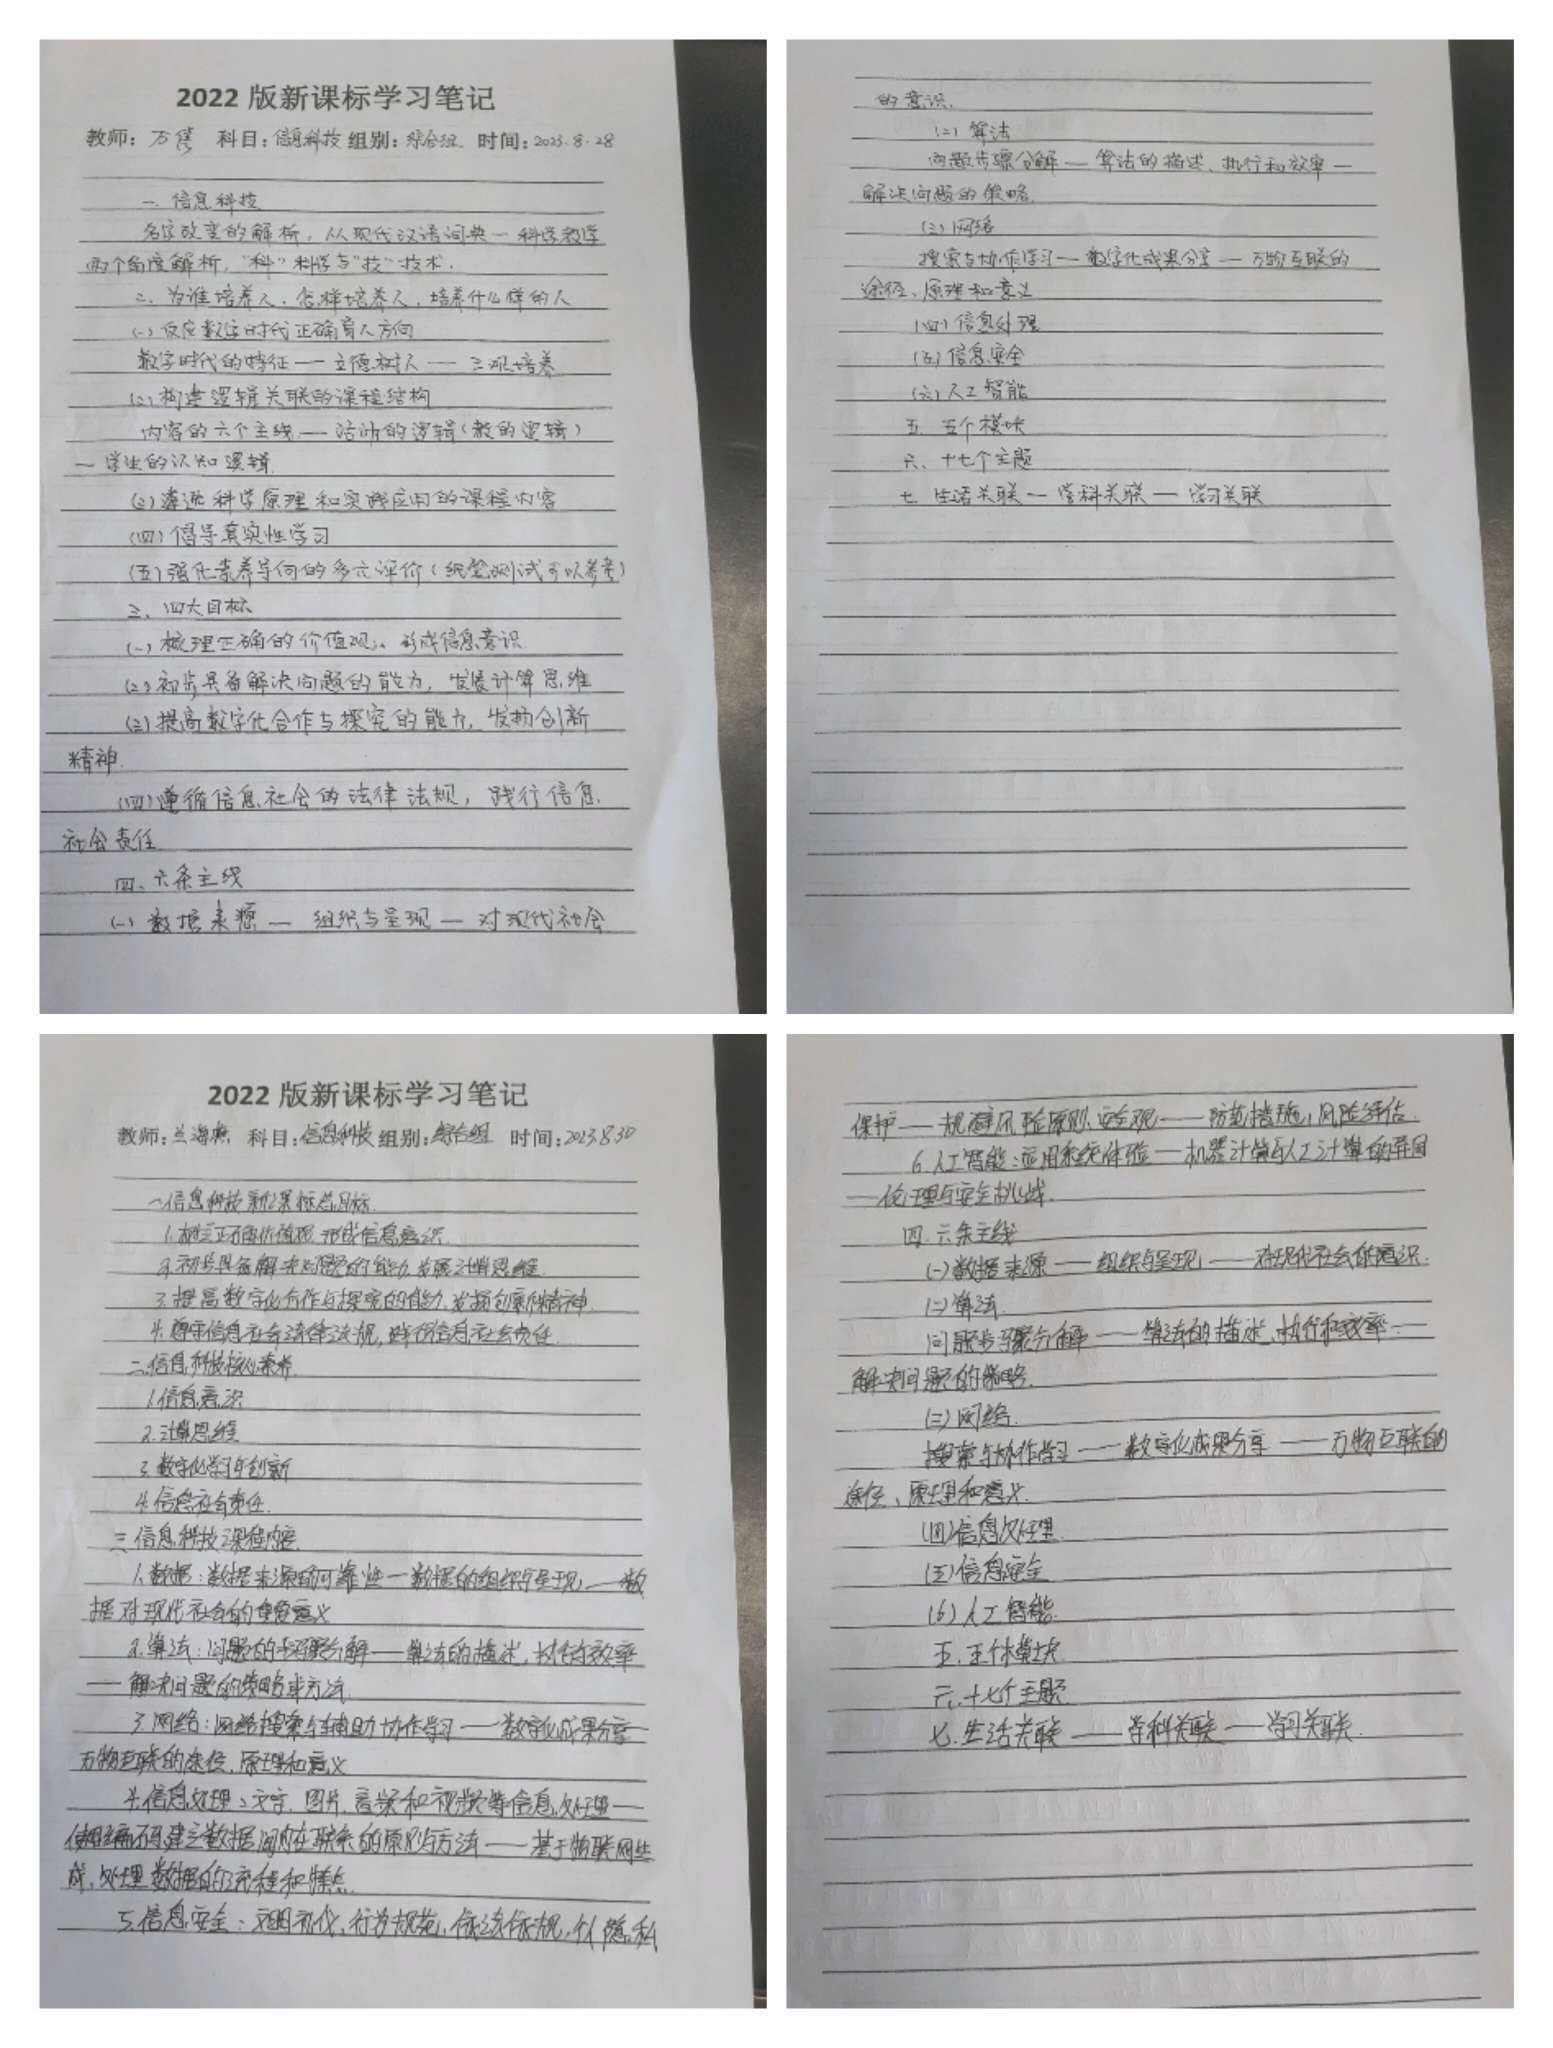 2022 版新课标学习笔记
教师: 万 科目: 信息科技 组别: 综合组 时间: 2023.8.28
一. 信息科技
名字改变的解析, 从现代汉语词典一科学教学
两个角度解析, “科”科学与“技”技术.
二、为谁培养人, 怎样培养人, 培养什么样的人
(一) 反应数字时代正确育人方向
数字时代的特征——立德树人——三观培养
(二) 构建逻辑关联的课程结构
内容的六个主线——活动的逻辑(教的逻辑)
一学生的认知逻辑.
(三) 遴选科学原理和实践应用的课程内容
(四) 倡导真实性学习
(五) 强化素养导向的多元评价(纸笔测试可以参考)
三、四大目标
(一) 梳理正确的价值观, 形成信息意识
(二) 初步具备解决问题的能力, 发展计算思维
(三) 提高数字化合作与探究的能力, 发扬创新
精神.
(四) 遵循信息社会的法律法规, 践行信息
社会责任
四、六条主线
(一) 数据来源 — 组织与呈现 — 对现代社会
的意识.
(二) 算法
问题步骤分解——算法的描述、执行和效率—
解决问题的策略.
(三) 网络
搜索与协作学习——数字化成果分享——万物互联的
途径、原理和意义
(四) 信息处理
(五) 信息安全
(六) 人工智能
五. 五个模块
六、十七个主题
七. 生活关联——学科关联——学习关联
2022 版新课标学习笔记
教师: 兰海燕 科目: 信息科技 组别: 综合组 时间: 2023.8.30
一.信息科技新课标总目标.
1.树立正确价值观, 形成信息意识.
2.初步具备解决问题的能力, 发展计算思维.
3.提高数字化合作与探究的能力, 发扬创新精神.
4.遵守信息社会法律法规, 践行信息社会责任.
二.信息科技核心素养.
1.信息意识
2.计算思维
3.数字化学习与创新
4.信息社会责任.
三.信息科技课程内容.
1.数据: 数据来源的可靠性—数据的组织与呈现——数
据对现代社会的重要意义
2.算法: 问题的步骤分解——算法的描述, 执行与效率
——解决问题的策略或方法.
3.网络: 网络搜索与辅助协作学习——数字化成果分享—
万物互联的途径, 原理和意义
4.信息处理: 文字. 图片. 音频和视频等信息处理——
使用编码建立数据间内在联系的原则与方法——基于物联网生
成, 处理数据的流程和特点.
5.信息安全: 文明礼仪, 行为规范, 依法依规, 个人隐私
保护——规避风险原则, 安全观——防范措施, 风险评估.
6.人工智能: 应用系统体验——机器计算与人工计算的异同
——伦理与安全挑战.
四. 六条主线
(一) 数据来源——组织与呈现——对现代社会的意识.
(二) 算法
问题步骤分解——算法的描述, 执行和效率——
解决问题的策略.
(三) 网络.
搜索与协作学习——数字化成果分享——万物互联的
途径、原理和意义.
(四) 信息处理.
(五) 信息安全
(6) 人工智能.
五. 五个模块.
六. 十七个主题
七. 生活关联——学科关联——学习关联.